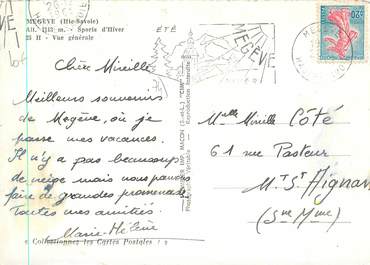 MEGÈVE (Hte-Savoie)
Alt. 1113 m. - Sports d'Hiver
25 H - Vue générale
Chère Mireille
Meilleurs souvenirs
de Megève, où je
passe mes vacances.
Il n'y a pas beaucoup
de neige mais nous pouvons
faire de grandes promenades
Toutes mes amitiés.
Marie-Hélène
« Collectionnez les Cartes Postales ! »
MACON (S.-et-L.)
Reproduction Interdite
Photographie Véritable
ÉTÉ
HIVER
MEGÈVE
0,20
Melle Mireille CÔTÉ
61 rue Pasteur
Mt St Aignan
(Sne Mme)